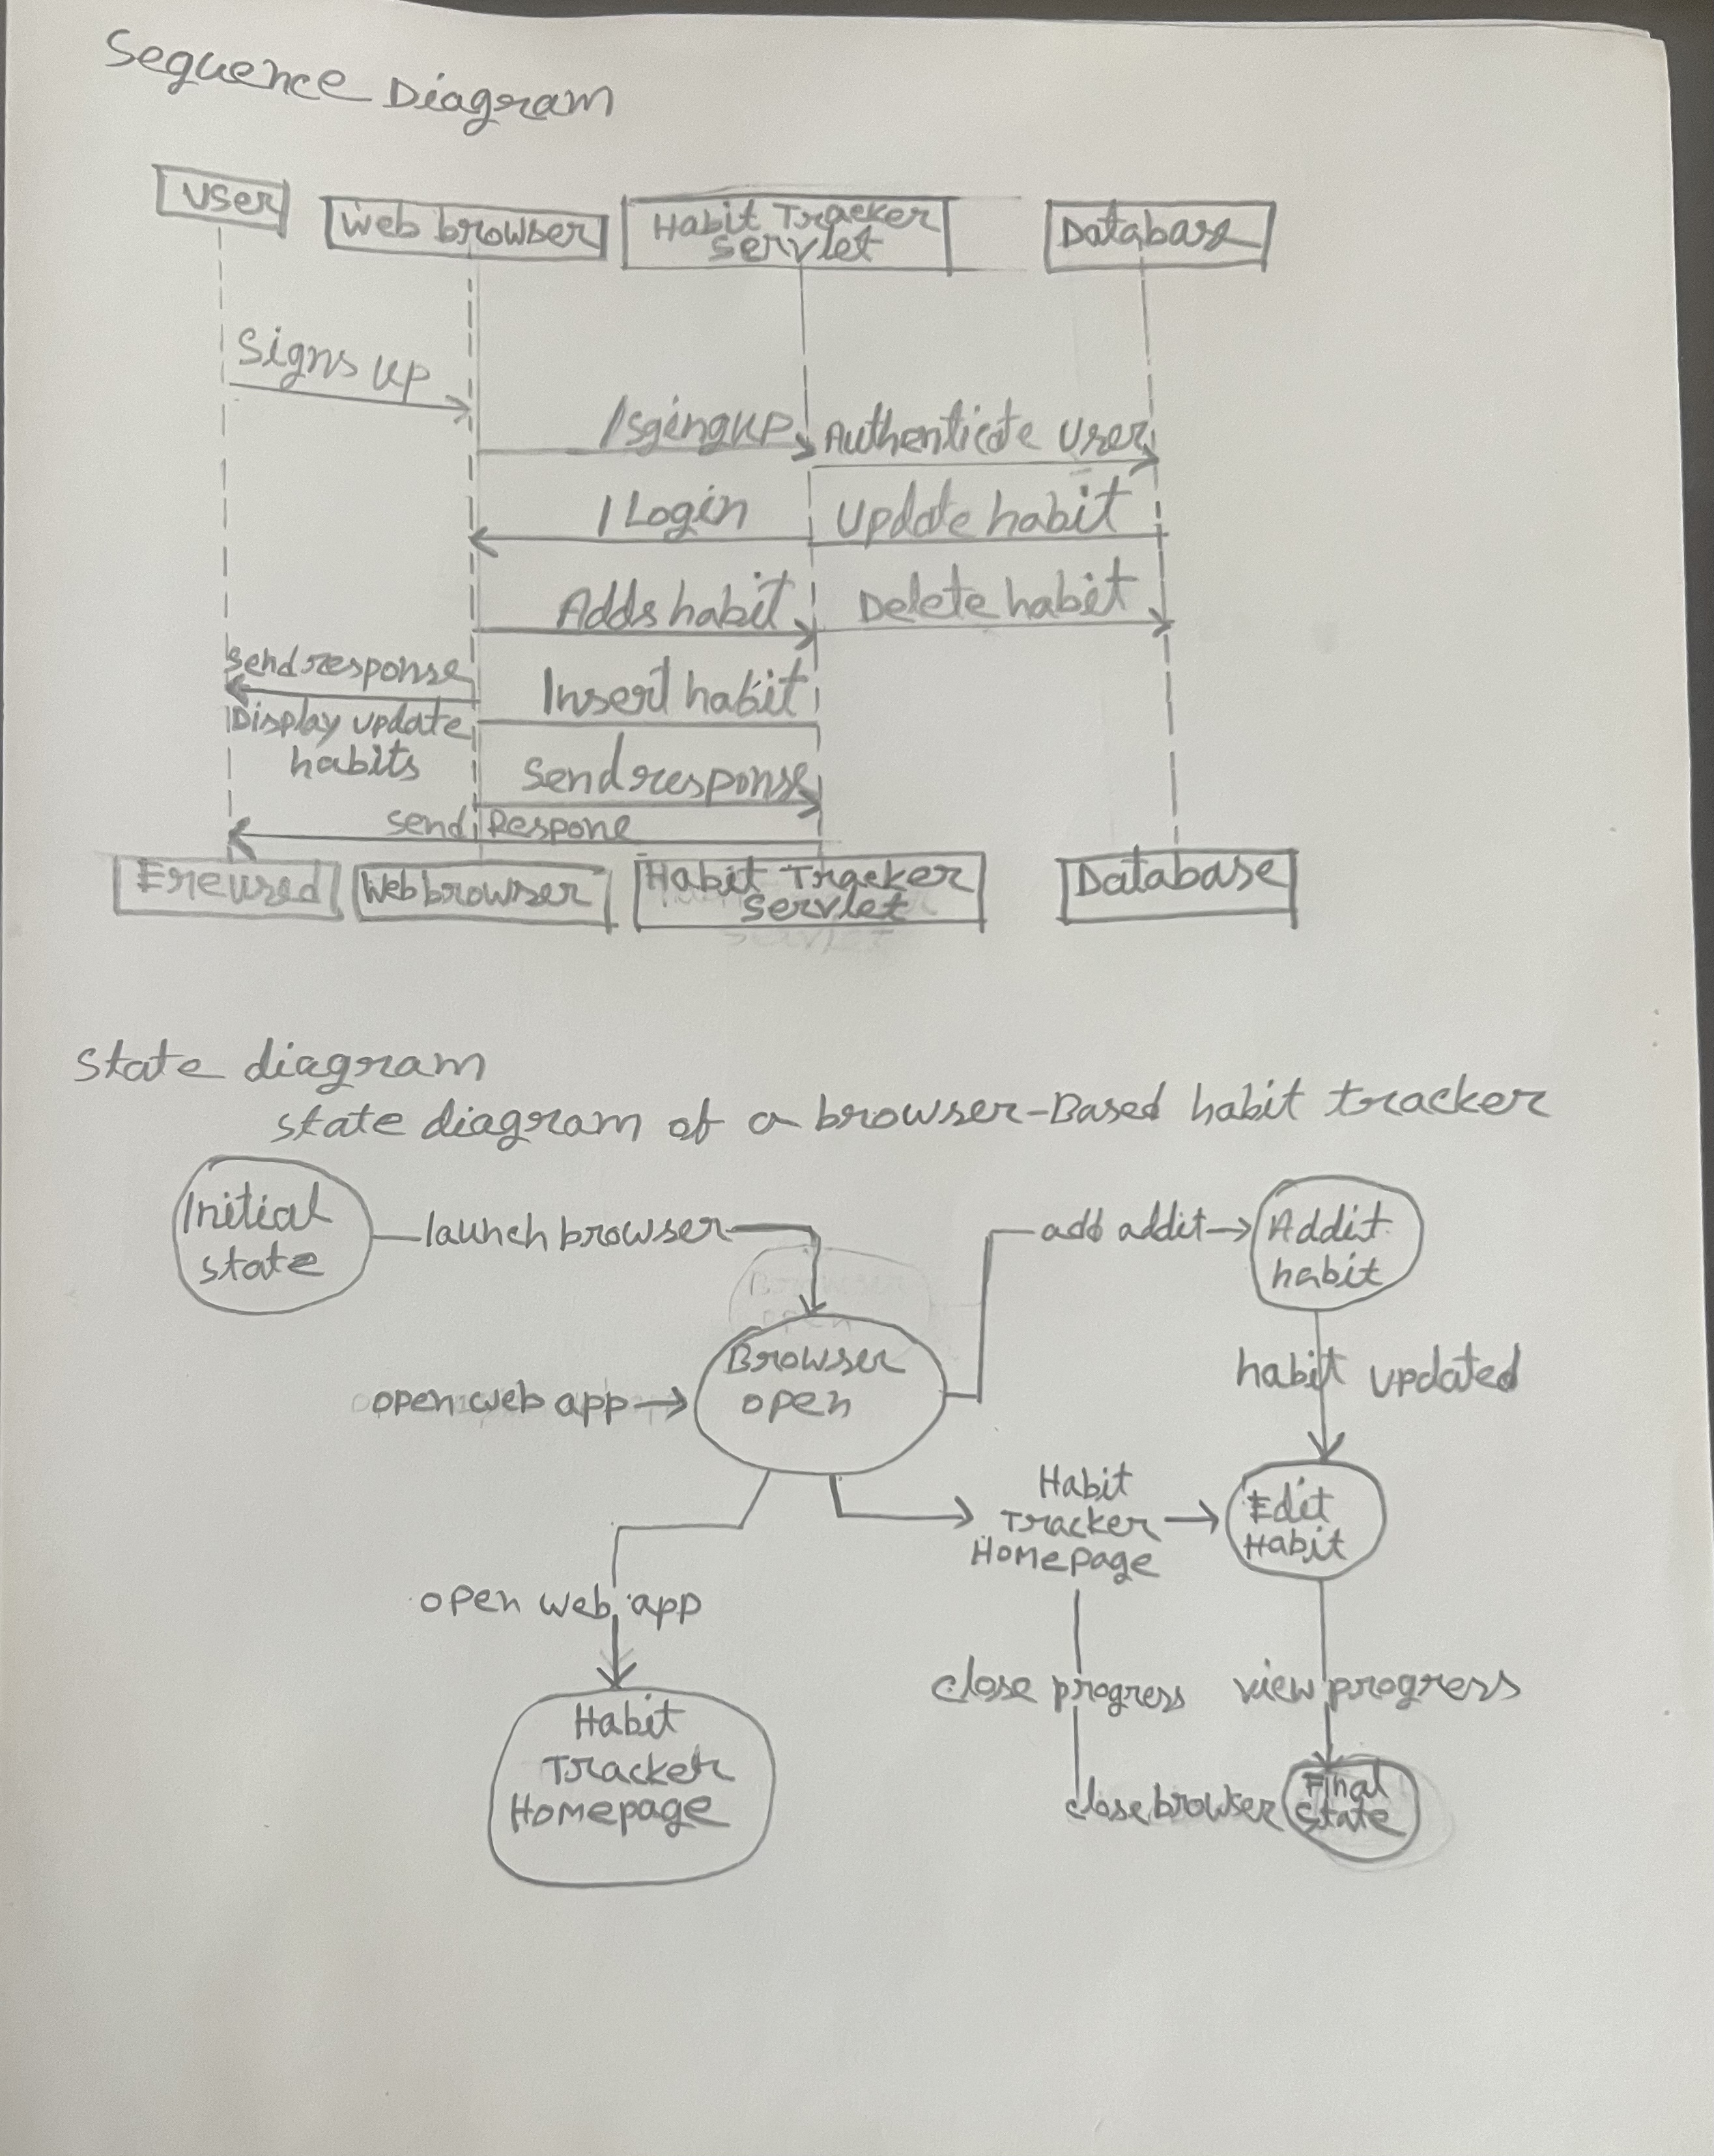 Sequence Diagram
User
Web browser
Habit Tracker
Servlet
Database
Signs up
/sgingup
Authenticate User
/Login
Update habit
Adds habit
Delete habit
Send response
Insert habit
Display update
habits
Send response
Send Respone
Ereused
Web browser
Habit Tracker
Servlet
Database
State diagram
state diagram of a browser-Based habit tracker
Initial
state
launch browser
add addit
Addit
habit
Browser
open
open web app
habit updated
Habit
Tracker
Homepage
Edit
Habit
open web app
close progress
view progress
Habit
Tracker
Homepage
close browser
Final
State